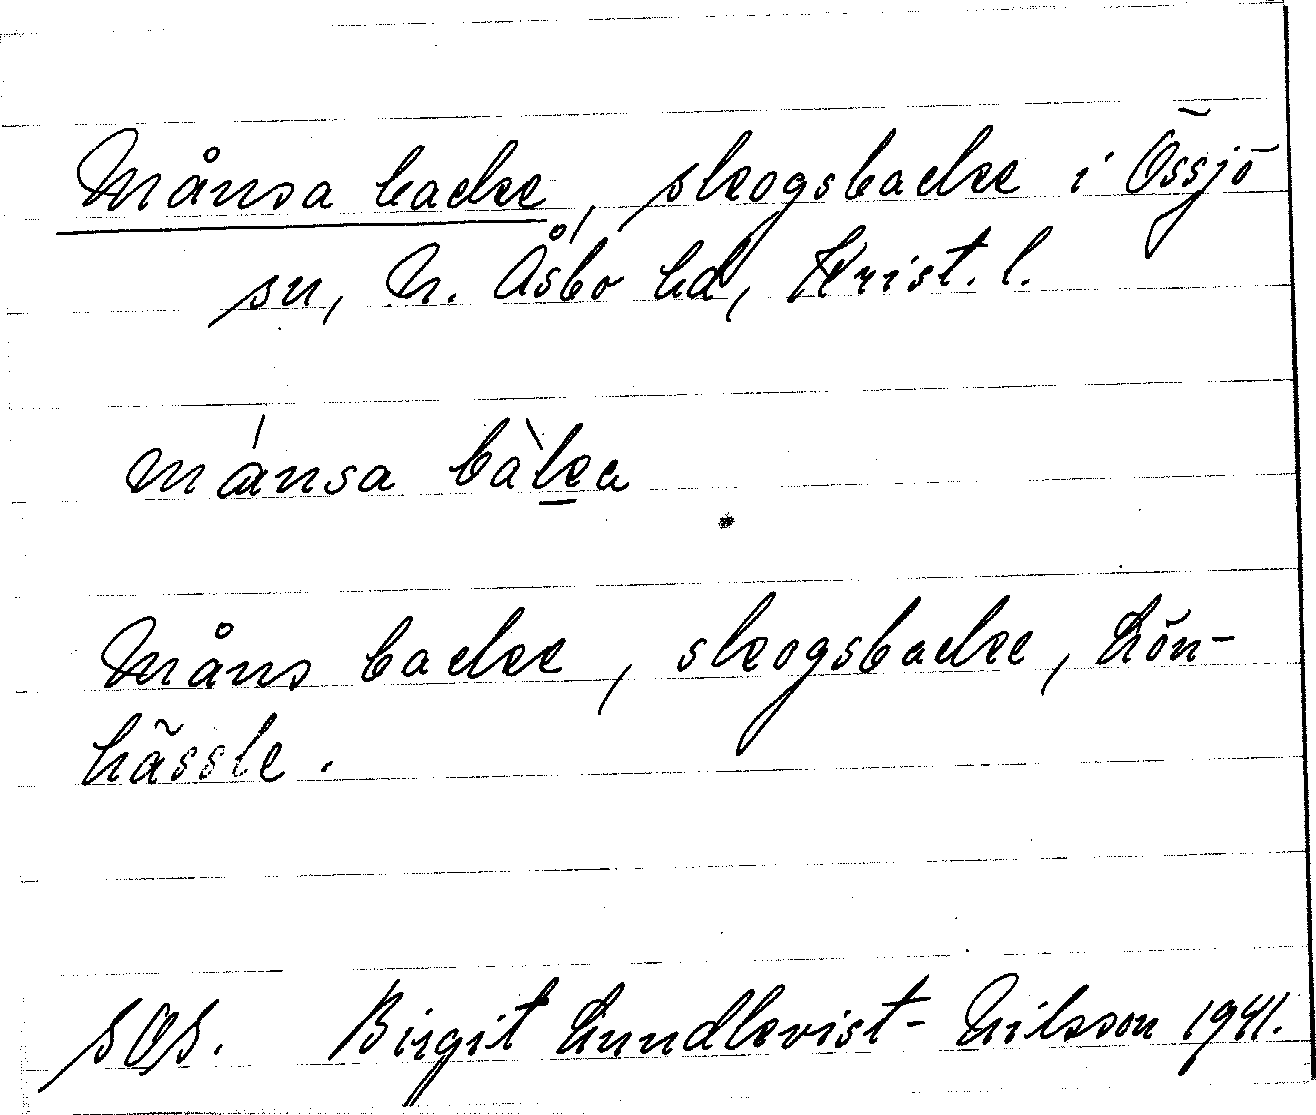 Månsa backe, skogsbacke i Össjö
sn, N. Åsbo hd, Krist. l.
månsa bàka
Måns backe, skogsbacke, Lön-
hässle.
SOS. Birgit Lundkvist-Nilsson 1941.